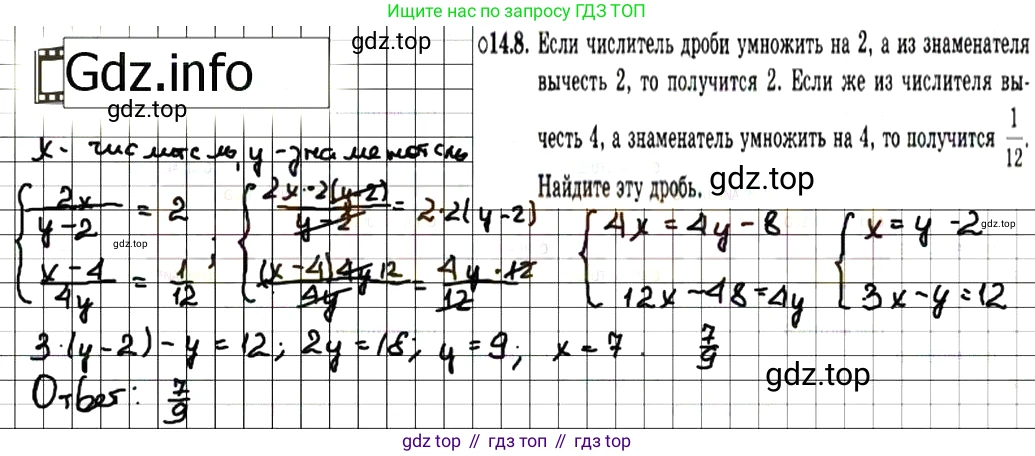 Ищите нас по запросу ГДЗ ТОП
gdz.top
Gdz.info
gdz.top
14.8. Если числитель дроби умножить на 2, а из знаменателя
вычесть 2, то получится 2. Если же из числителя вы-
честь 4, а знаменатель умножить на 4, то получится 1/12.
Найдите эту дробь.
gdz.top
x - числитель, y - знаменатель
{ 2x/(y-2) = 2 ; { 2x·2(y-2)/(y-2) = 2·2(y-2) { 4x = 4y - 8 { x = y - 2
{ (x-4)/4y = 1/12 { (x-4)4y12/4y = 4y·12/12 { 12x - 48 = 4y { 3x - y = 12
gdz.top
gdz.top
gdz.top
gdz.top
3·(y-2) - y = 12; 2y = 18; y = 9; x = 7. 7/9
gdz.top
Ответ: 7/9
gdz top // гдз топ // gdz.top